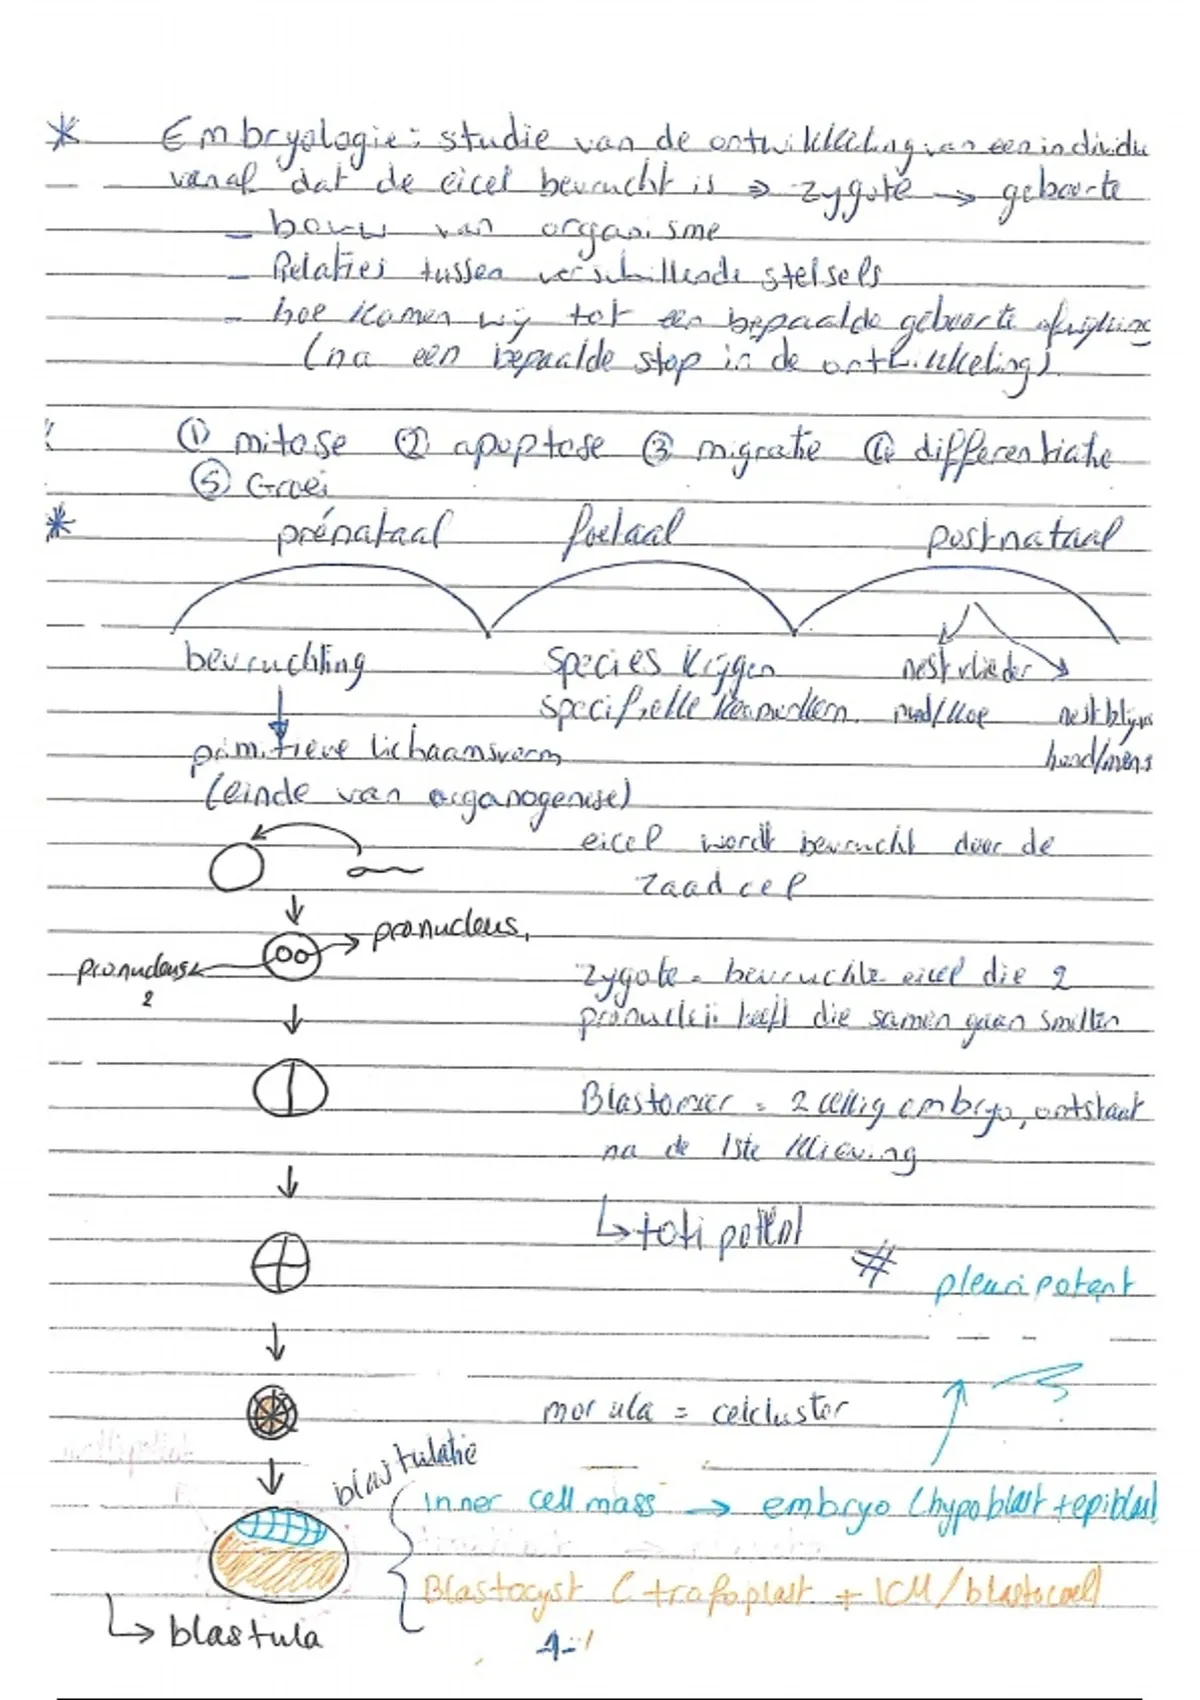 * Embryologie: studie van de ontwikkeling van een individu
vanaf dat de eicel bevrucht is => zygote → geboorte
- bouw van organisme
- Relaties tussen verschillende stelsels
- hoe komen wij tot een bepaalde geboorte afwijking
(na een bepaalde stop in de ontwikkeling)
① mitose ② apoptose ③ migratie ④ differentiatie
⑤ Groei
* prénataal foetaal postnataal
bevruchting species krijgen nestvlieder
specifieke kenmerken nestblijver
primitieve lichaamsvorm hond/mens
(einde van organogenese)
eicel wordt bevrucht door de
zaadcel
pronucleus 1
pronucleus 2
zygote = bevruchte eicel die 2
pronucleii heeft die samen gaan smelten
Blastomeer = 2 cellig embryo, ontstaat
na de 1ste klieving
↳ totipotent
# pleuripotent
morula = celcluster
blastulatie
inner cell mass → embryo (hypoblast + epiblast
Blastocyst ( trofoplast + ICM/blastocoel)
↳ blastula